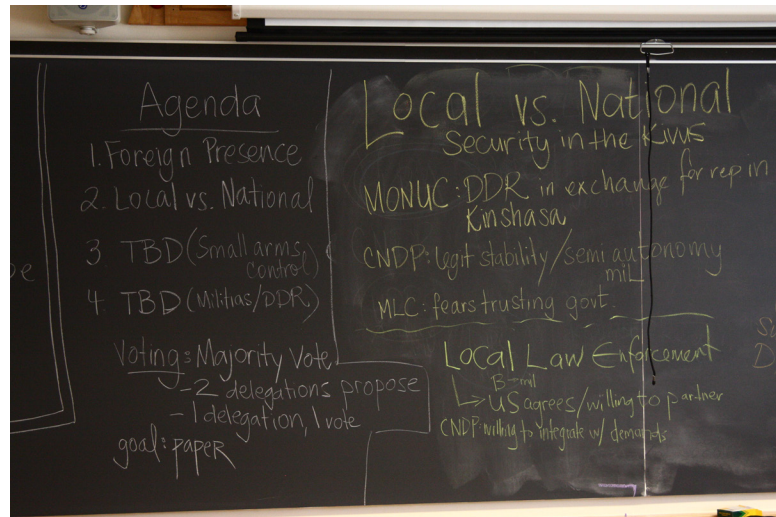 Agenda
1. Foreign Presence
2. Local vs. National
3 TBD (Small arms
control)
4 TBD (Militias/DDR)
Voting: Majority Vote
- 2 delegations propose
- 1 delegation, 1 vote
goal: paper
Local vs. National
Security in the Kivus
MONUC: DDR in exchange for rep in
Kinshasa
CNDP: legit stability/semi autonomy
mil
MLC: fears trusting govt.
Local Law Enforcement
US agrees/willing to partner
CNDP: willing to integrate w/ demands